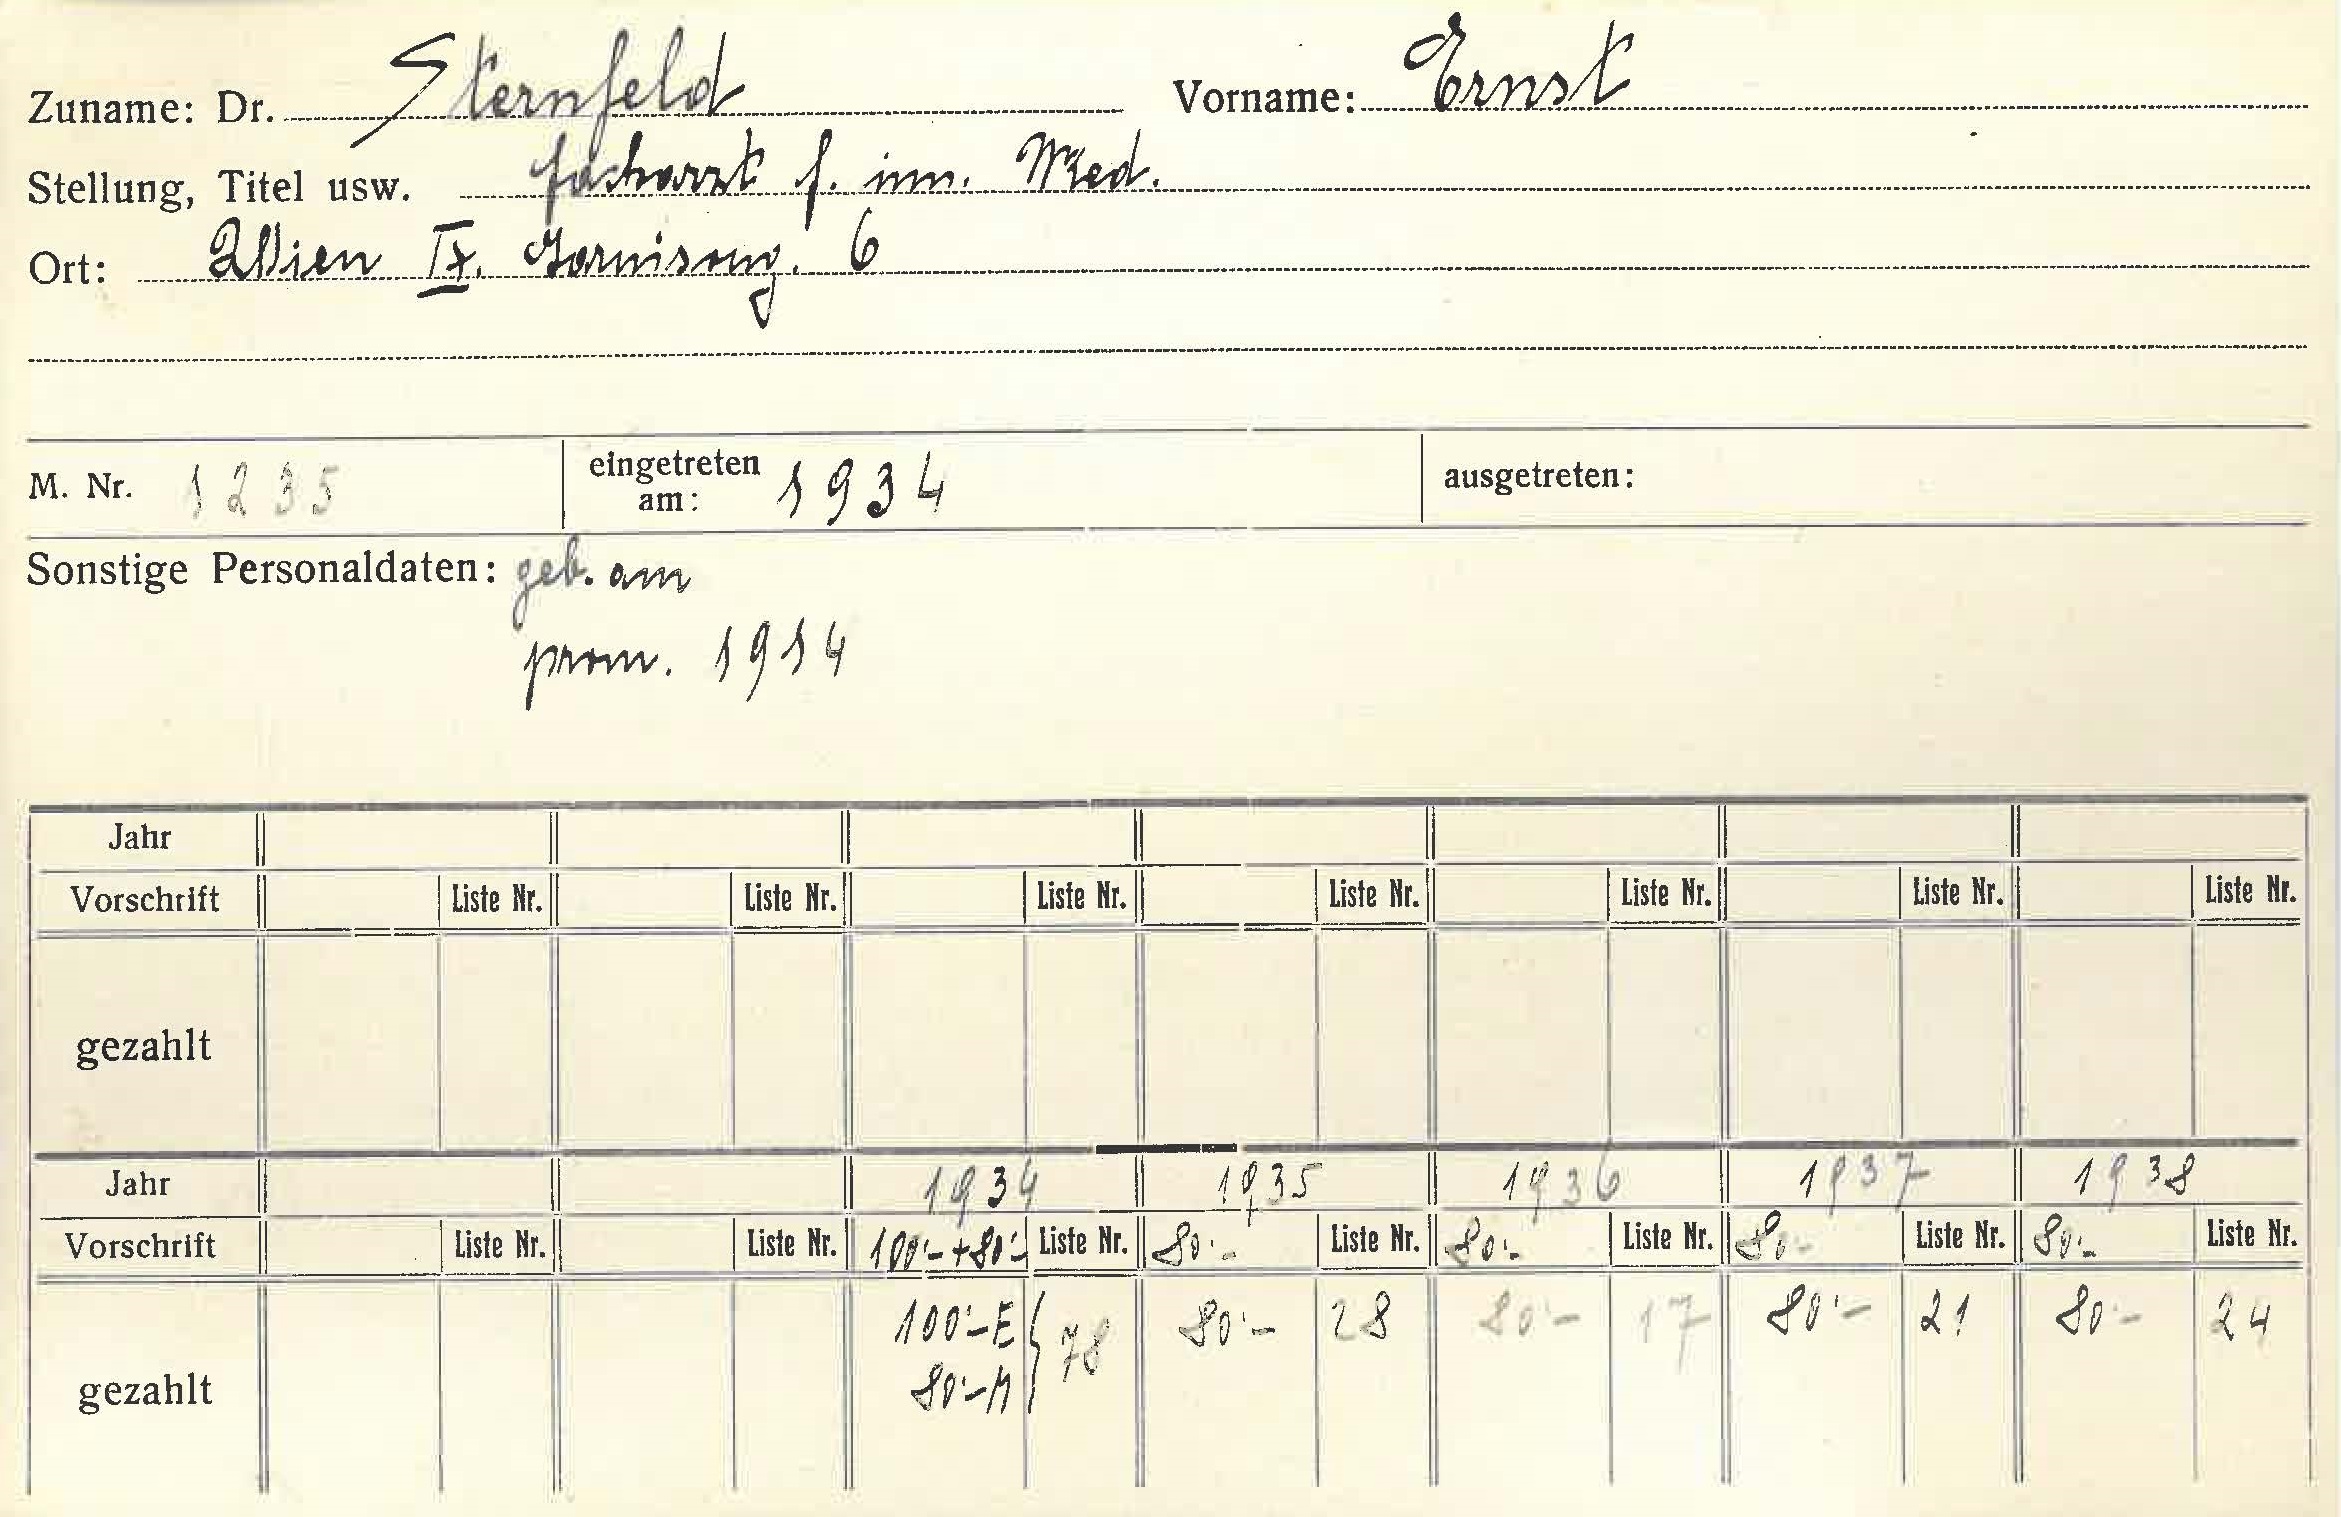 Zuname: Dr. Sternfeld Vorname: Ernst
Stellung, Titel usw. Facharzt f. inn. Med.
Ort: Wien IX. Garnisong. 6
M. Nr. 1235 eingetreten am: 1934 ausgetreten:
Sonstige Personaldaten: geb. am
prom. 1914
Jahr
Vorschrift Liste Nr. Liste Nr. Liste Nr. Liste Nr. Liste Nr. Liste Nr. Liste Nr.
gezahlt
Jahr 1934 1935 1936 1937 1938
Vorschrift Liste Nr. Liste Nr. 100·- + 80·- Liste Nr. 80·- Liste Nr. 80·- Liste Nr. 80·- Liste Nr. 80·- Liste Nr.
100·- E } 78 80·- 28 80·- 17 80·- 21 80·- 24
gezahlt 80·- M